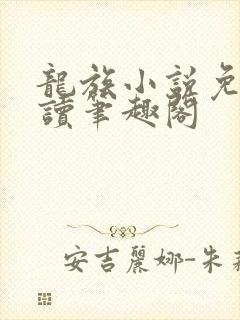 龍族小說免
讀筆趣閣
安吉麗娜-朱